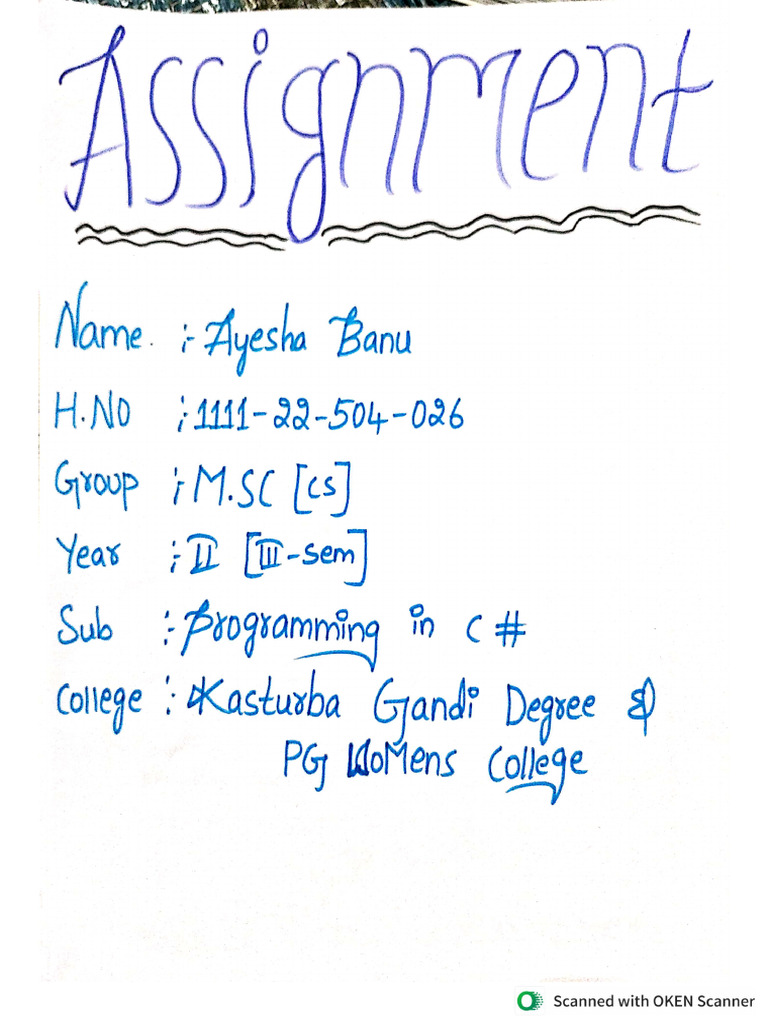 Assignment
Name :- Ayesha Banu
H.NO :- 1111-22-504-026
Group :- M.SC [CS]
Year :- II [III-sem]
Sub :- Programming in C#
College :- Kasturba Gandi Degree &
PG WoMens College
Scanned with OKEN Scanner